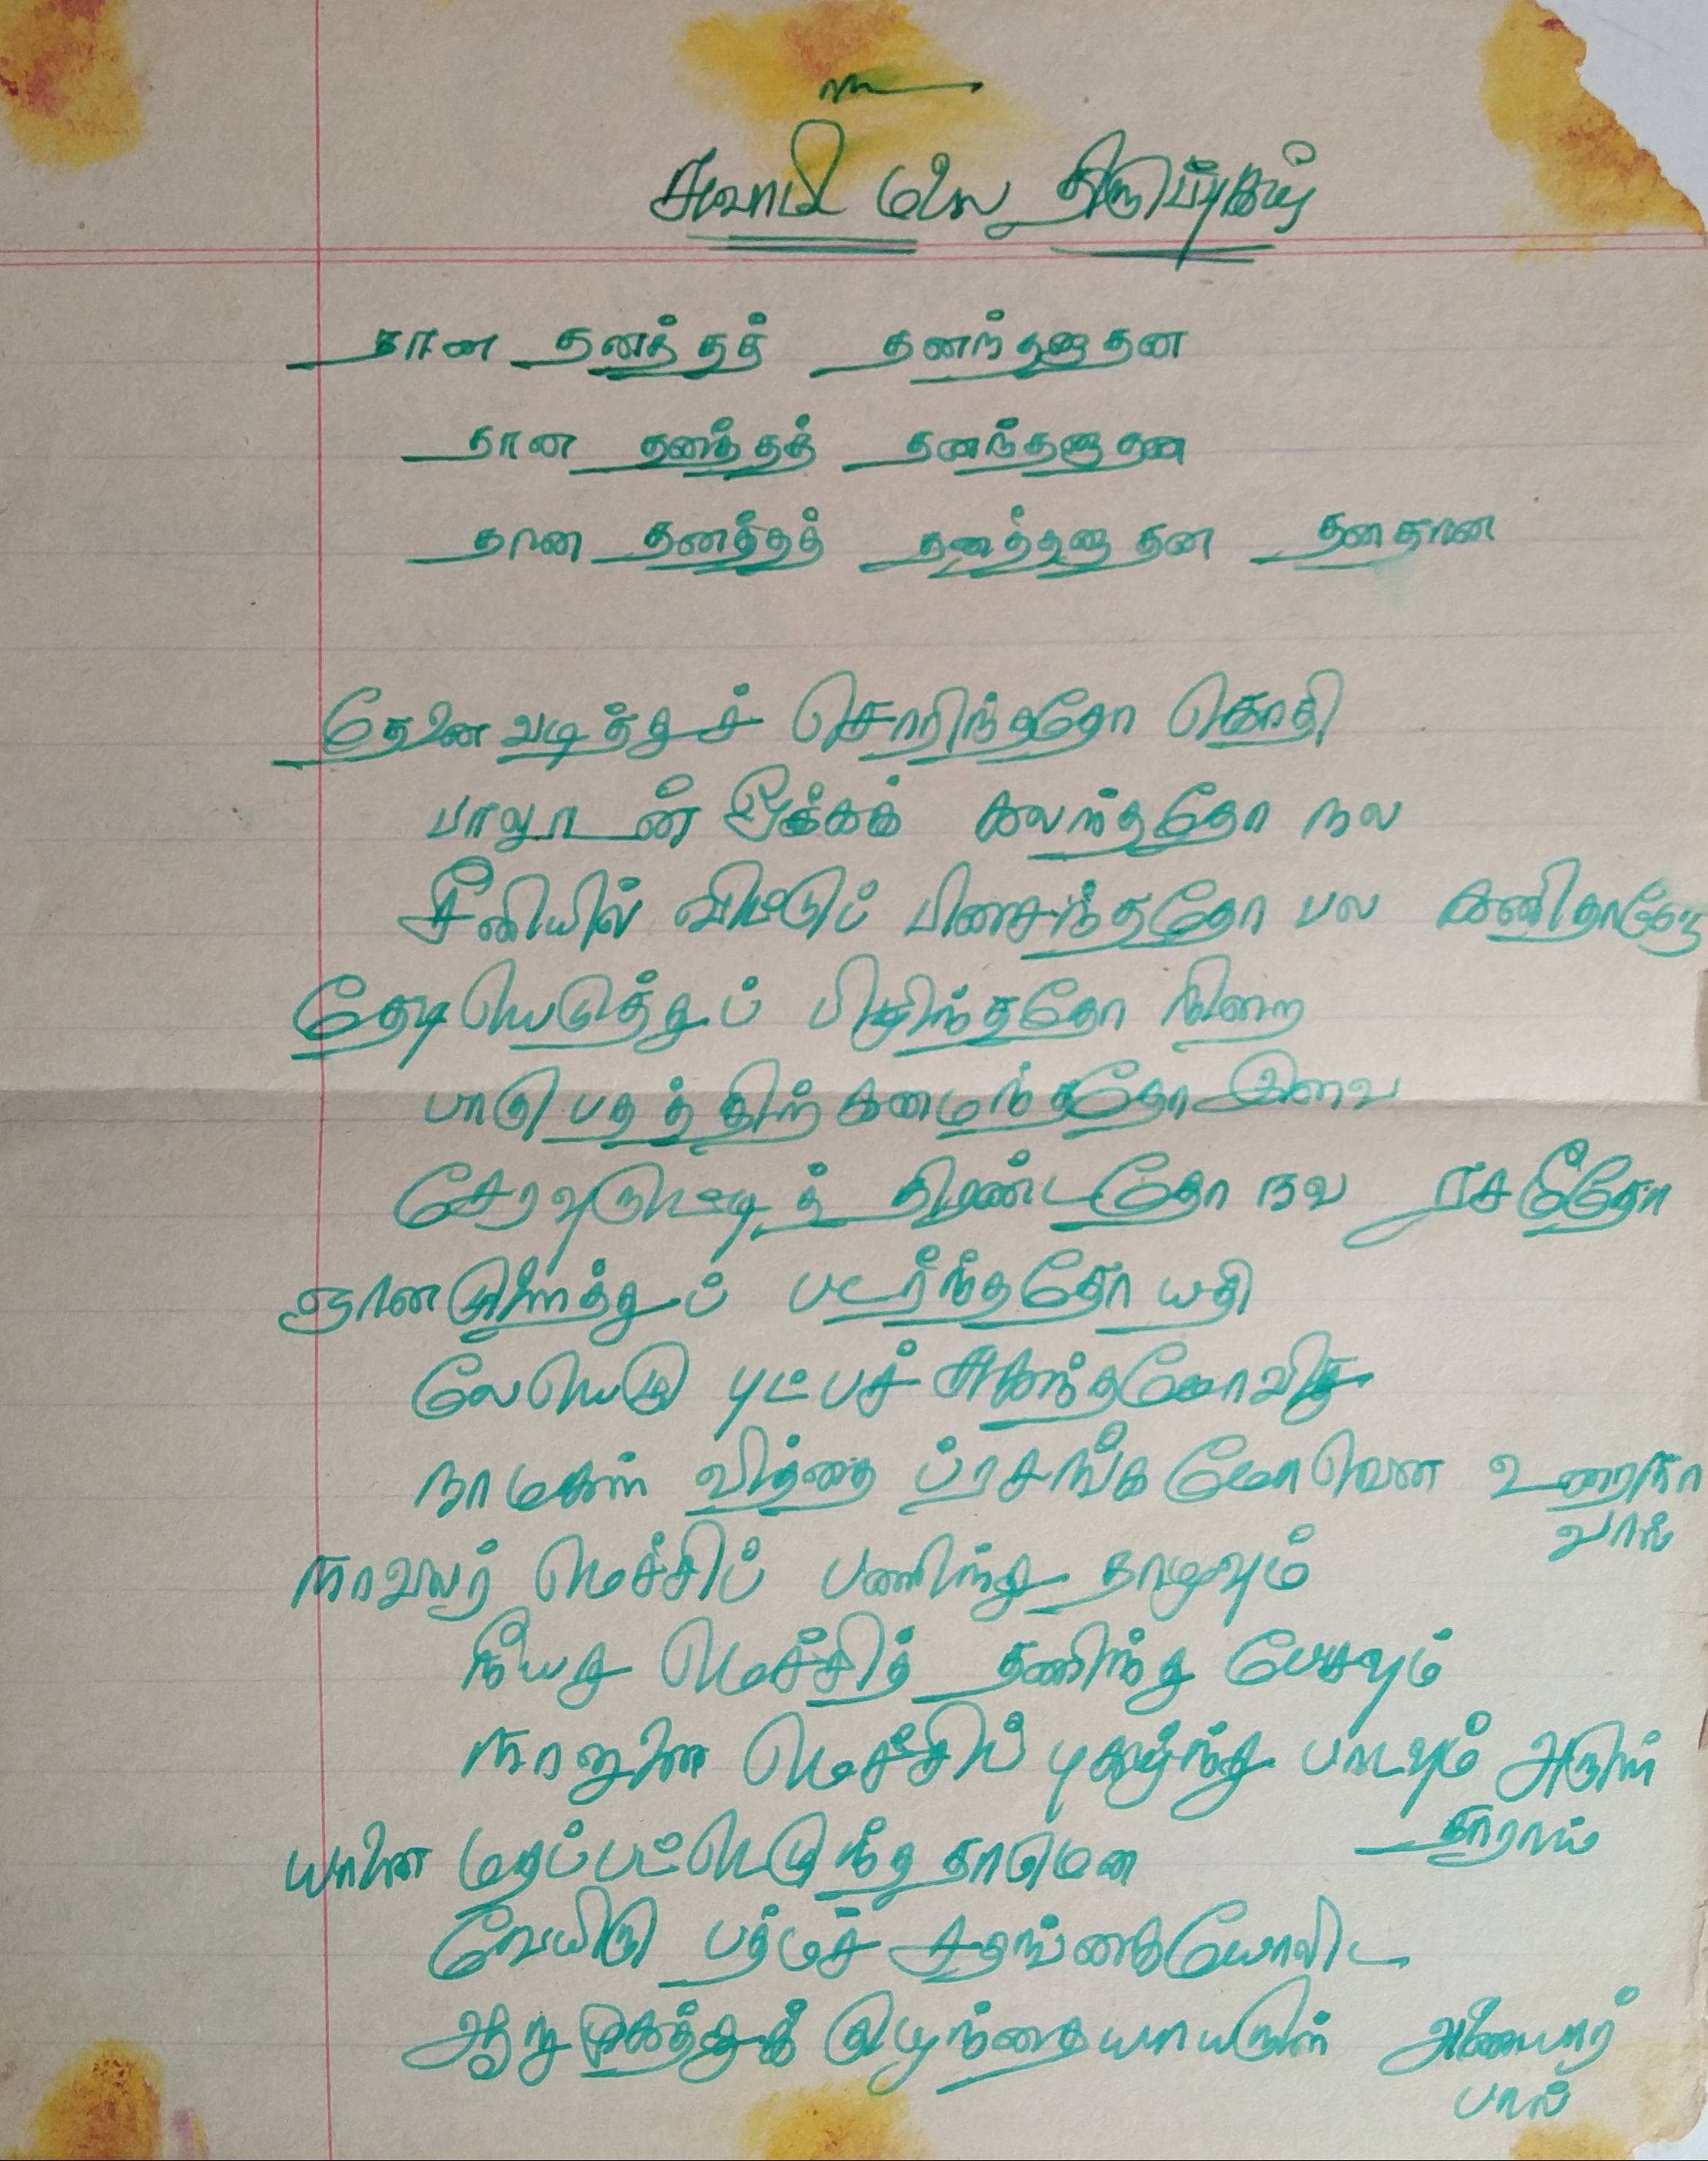 உ
சுவாமி மலை திருப்புகழ்
தான தனத்தத் தனந்தனாதன
தான தனத்தத் தனந்தனாதன
தான தனத்தத் தனத்தனா தன தனதான
தேனை வடித்துச் சொரிந்ததோ கொதி
பாலுடன் கலந்ததோ நல
சீனியில் விட்டுப் பிசைந்ததோ பல கனிதானே
தேடியெடுத்துப் பிழிந்ததோ நிறை
பாகு பதத்திற் கமைந்ததோ இவை
சேரவுருட்டித் திரண்டதோ நவ ரசமீதோ
ஞான குளித்துப் படர்ந்ததோ யதி
லேயெடு புட்பச் சுகந்தமோவித
நாமகள் வித்தை ப்ரசங்கமோவென உரைநா
வால்
நாவலர் மெச்சிப் பணிந்து தாழவும்
நீயது மெச்சித் தணிந்து பேசவும்
நானுனை மெச்சிப் புகழ்ந்து பாடவும் அருள்
தாராய்
யானை மதப்பட்டெடுந்த தாமென
வேயிரு பத்மச் சதங்கையோவிட
ஆறு முகத்துக் குழந்தையாயருள் அணையார்
பால்